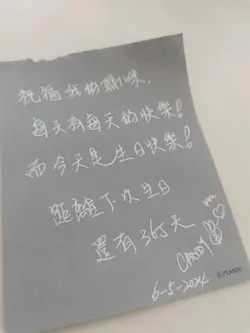 祝福我的媽咪,
每天有每天的快樂!
而今天是生日快樂!
距離下次生日
還有365天
CANDY
6-5-2024
PLAIN